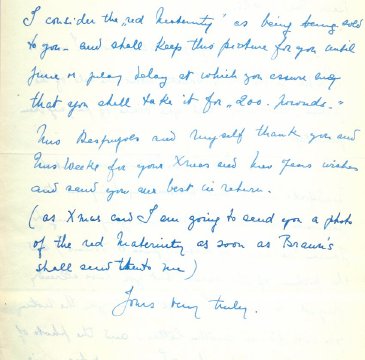 I consider the „red Maternity" as being being sold
to you - and shall keep this picture for you until
June delay at which you assure
that you shall take it for „200. pounds."
Mrs Despujols and myself thank you and
Mrs for your Xmas and New Years wishes
and send you our best in return.
(as Xmas card I am going to send you a photo
of the red Maternity as soon as Braun's
shall send to me)
Yours very truly.